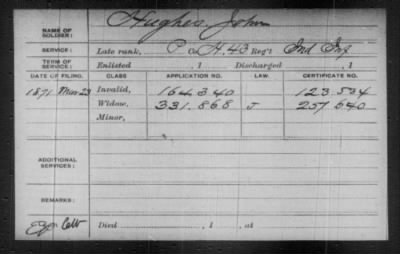 NAME OF SOLDIER: Hughes, John
SERVICE: Late rank, P Co. H, 43 Reg't Ind Inf
TERM OF SERVICE: Enlisted , 1 Discharged , 1
DATE OF FILING. CLASS APPLICATION NO. LAW. CERTIFICATE NO.
1871 Mar 23 Invalid, 164.340 123.534
Widow, 331.868 J 257.640
Minor,
ADDITIONAL SERVICES:
REMARKS:
Died , 1 , at